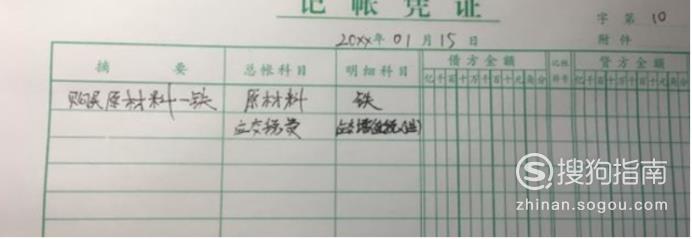 记帐凭证
字第10
20xx年01月15日
附件
摘要 总帐科目 明细科目 借方金额 记帐符号 贷方金额
亿千百十万千百十元角分 亿千百十万千百十元
购买原材料-铁 原材料 铁
应交税费 应交增值税(进)
搜狗指南
zhinan.sogou.com